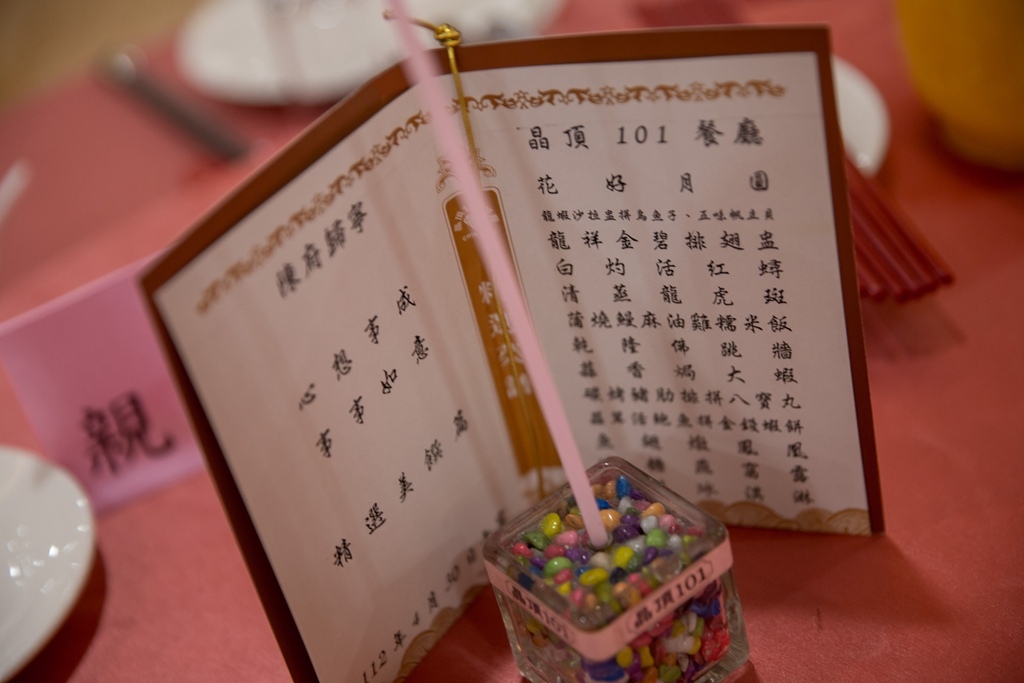 晶頂 101 餐廳
花好月圓
龍蝦沙拉盅拼烏魚子、五味帆立貝
龍祥金碧排翅盅
白灼活紅蟳
清蒸龍虎斑
蒲燒鰻麻油雞糯米飯
乾隆佛跳牆
蒜香焗大蝦
碳烤豬肋排拼八寶丸
活鮑魚拼金錢蝦餅
魚翅燉鳳凰
燕窩露
陳府歸寧
心想事成
事事如意
精選美饌為
親
晶頂101
晶頂101